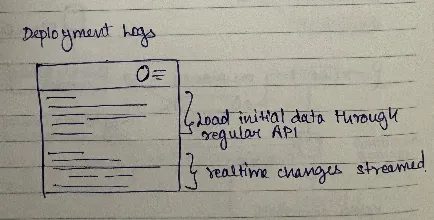 Deployment Logs
Load initial data through
regular API
realtime changes streamed.